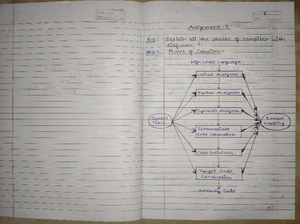 Assignment-1
Q.1 Explain all the phases of compiler with
diagram ?
Ans-1. Phases of Compiler:-
High Level Language
Lexical Analyzer
Syntax Analyzer
Semantic Analyzer
Symbol Table
Error Handling
Intermediate
Code Generator
Code Optimizer
Target Code
Generation
Assembly Code